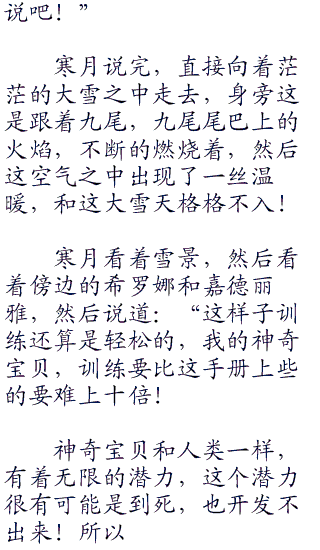 说吧！”
寒月说完，直接向着茫
茫的大雪之中走去，身旁这
是跟着九尾，九尾尾巴上的
火焰，不断的燃烧着，然后
这空气之中出现了一丝温
暖，和这大雪天格格不入！
寒月看着雪景，然后看
着傍边的希罗娜和嘉德丽
雅，然后说道：“这样子训
练还算是轻松的，我的神奇
宝贝，训练要比这手册上些
的要难上十倍！
神奇宝贝和人类一样，
有着无限的潜力，这个潜力
很有可能是到死，也开发不
出来！所以